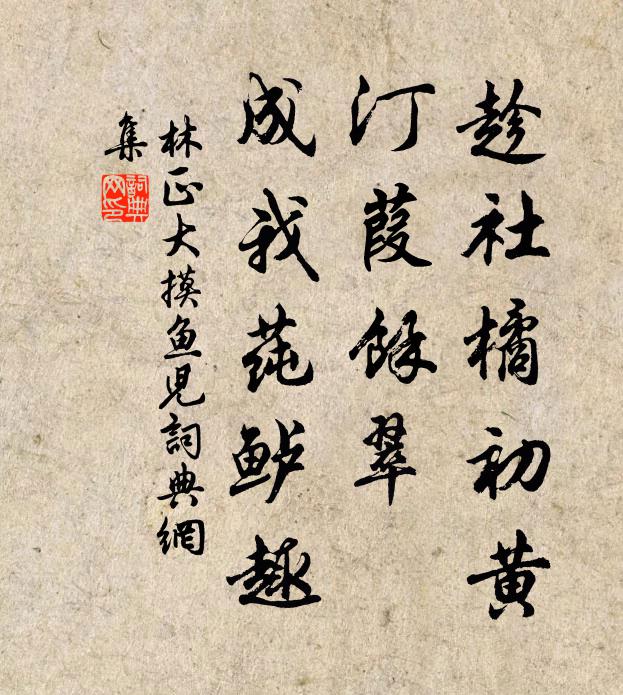 趁社橘初黄
汀葭餘翠
成我莼鲈趣
林正大摸鱼儿詞典網
集
詞典
网印